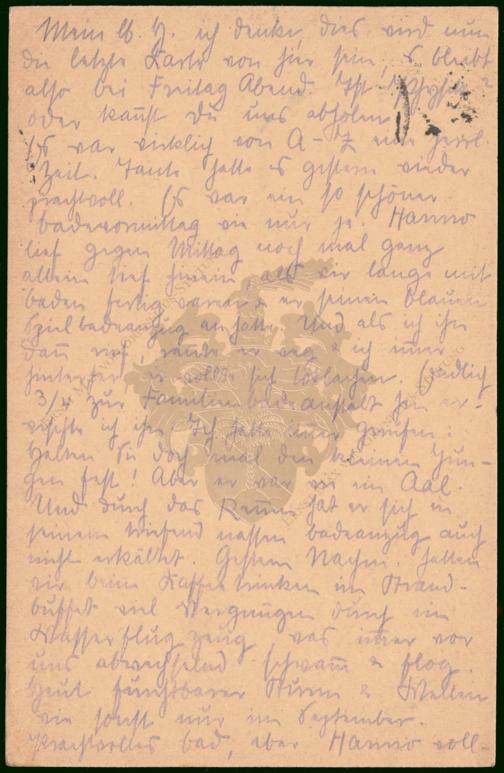 Mein lb. H. ich denke, dies wird nun
die letzte Karte von hier sein, es bleibt
also bei Freitag Abend. Ist
oder kannst Du uns abholen
Es war wirklich von A-Z eine herrl.
Zeit. Tante hatte es gestern wieder
prachtvoll. Es war ein so schöner
badevormittag wie nur je. Hanno
lief gegen Mittag noch mal ganz
allein tief hinein als wir lange mit
baden fertig waren & er seinen blauen
Spielbadeanzug an hatte. Und als ich ihn
dann rief, rannte er weg, ich immer
hinterher, er wollte sich totlachen. Endlich
3/4 zur Familienbadeanstalt hin er-
wischte ich ihn. Ich hatte nur gerufen:
Halten Sie doch mal den kleinen Jun-
gen fest! Aber er war wie ein Aal.
Und durch das Rennen hat er sich in
seinem triefend nassen badeanzug auch
nicht erkältet. Gestern Nachm. hatten
wir beim Kaffeetrinken im Strand-
buffet viel Vergnügen durch ein
Wasserflugzeug was immer vor
uns abwechselnd schwamm & flog.
Heut furchtbarer Sturm & Wellen
wie sonst nur im September.
Prachtvolles bad, aber Hanno voll-